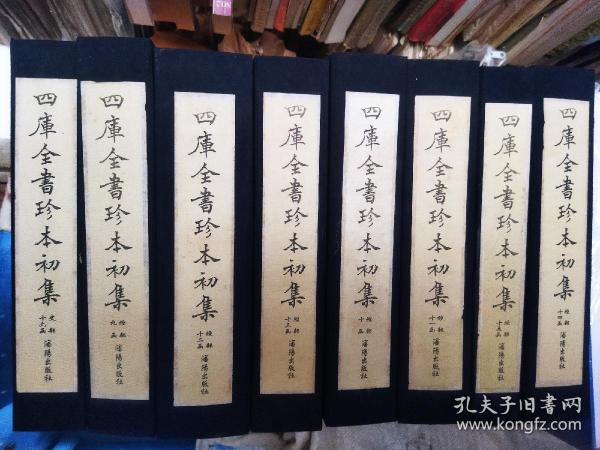 四庫全書珍本初集
史部
十六函
四庫全書珍本初集
經部
九函
瀋陽出版社
四庫全書珍本初集
經部
十二函
瀋陽出版社
四庫全書珍本初集
經部
十三函
瀋陽出版社
四庫全書珍本初集
經部
十函
瀋陽出版社
四庫全書珍本初集
經部
十一函
瀋陽出版社
四庫全書珍本初集
經部
十五函
瀋陽出版社
四庫全書珍本初集
經部
十四函
瀋陽出版社
孔夫子旧书网
www.kongfz.com